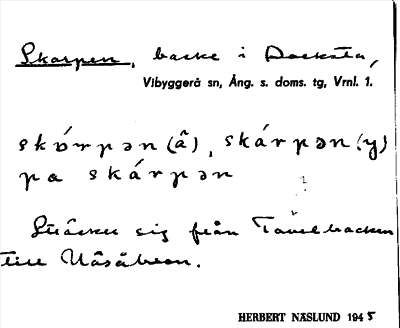 Skarpen, backe i Docksta,
Vibyggerå sn, Ång. s. doms. tg, Vrnl. 1.
skɒ́rpən (â), skárpən (y)
pa skárpən
Sträcker sig från Tävelbacken
till Nåsåbron.
HERBERT NÄSLUND 1945